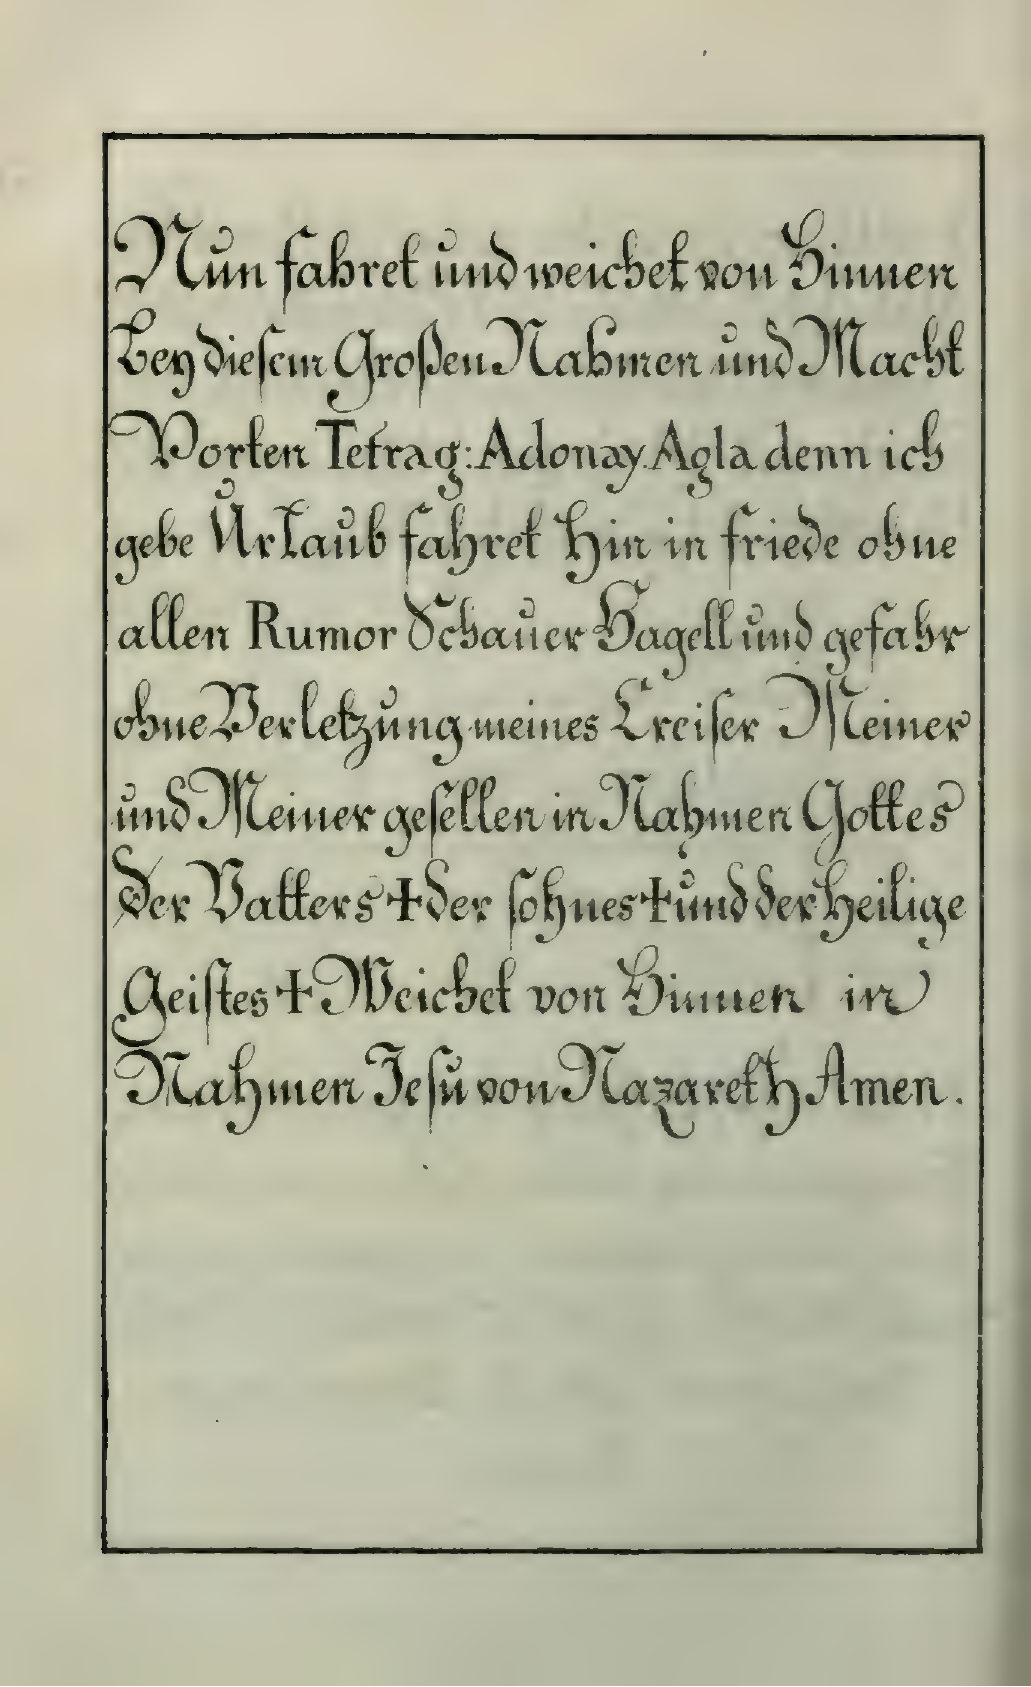 Nun fahret und weichet von Hinnen
bey diesem Großen Nahmen und Macht
Worten Tetrag: Adonay. Agla denn ich
gebe Urlaub fahret Hin in friede ohne
allen Rumor Schauer Hagell und gefahr
ohne Verletzung meines Creiser Meiner
und Meiner gesellen in Nahmen Gottes
der Vatters + der sohnes + und der Heilige
Geistes + Weichet von Hinnen in
Nahmen Jesu von Nazareth Amen.